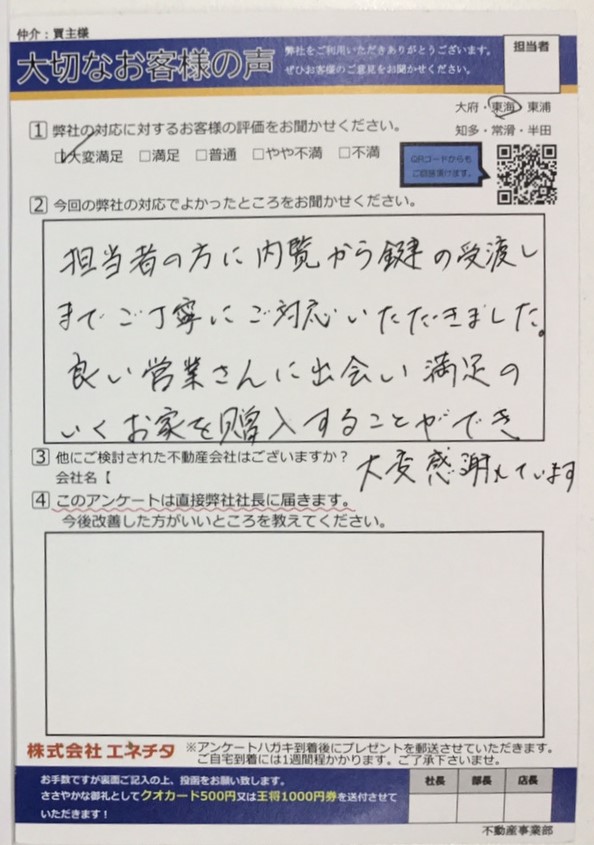 仲介：買主様
大切なお客様の声
弊社をご利用いただきありがとうございます。
ぜひお客様のご意見をお聞かせください。
担当者
大府・東海・東浦
知多・常滑・半田
1 弊社の対応に対するお客様の評価をお聞かせください。
☑大変満足 □満足 □普通 □やや不満 □不満
QRコードからも
ご回答頂けます。
2 今回の弊社の対応でよかったところをお聞かせください。
担当者の方に内覧から鍵の受渡し
までご丁寧にご対応いただきました。
良い営業さんに出会い満足の
いくお家を購入することができ
大変感謝しています
3 他にご検討された不動産会社はございますか？
会社名【
4 このアンケートは直接弊社社長に届きます。
今後改善した方がいいところを教えてください。
株式会社 エネチタ
※アンケートハガキ到着後にプレゼントを郵送させていただきます。
ご自宅到着には1週間程かかります。ご了承下さいませ。
お手数ですが裏面ご記入の上、投函をお願い致します。
ささやかな御礼としてクオカード500円又は王将1000円券を送付させて
いただきます！
社長 部長 店長
不動産事業部